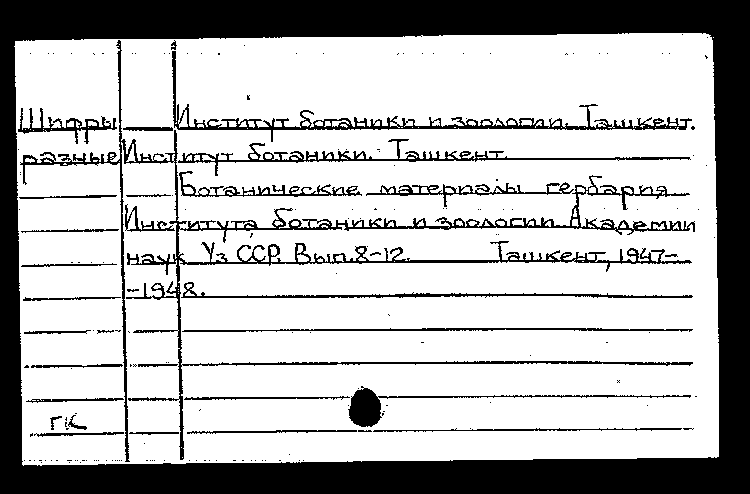 Шифры Институт ботаники и зоологии. Ташкент.
разные Институт ботаники. Ташкент.
Ботанические материалы гербария
Института ботаники и зоологии Академии
наук Уз ССР. Вып.8-12. Ташкент, 1947-
-1948.
ГК